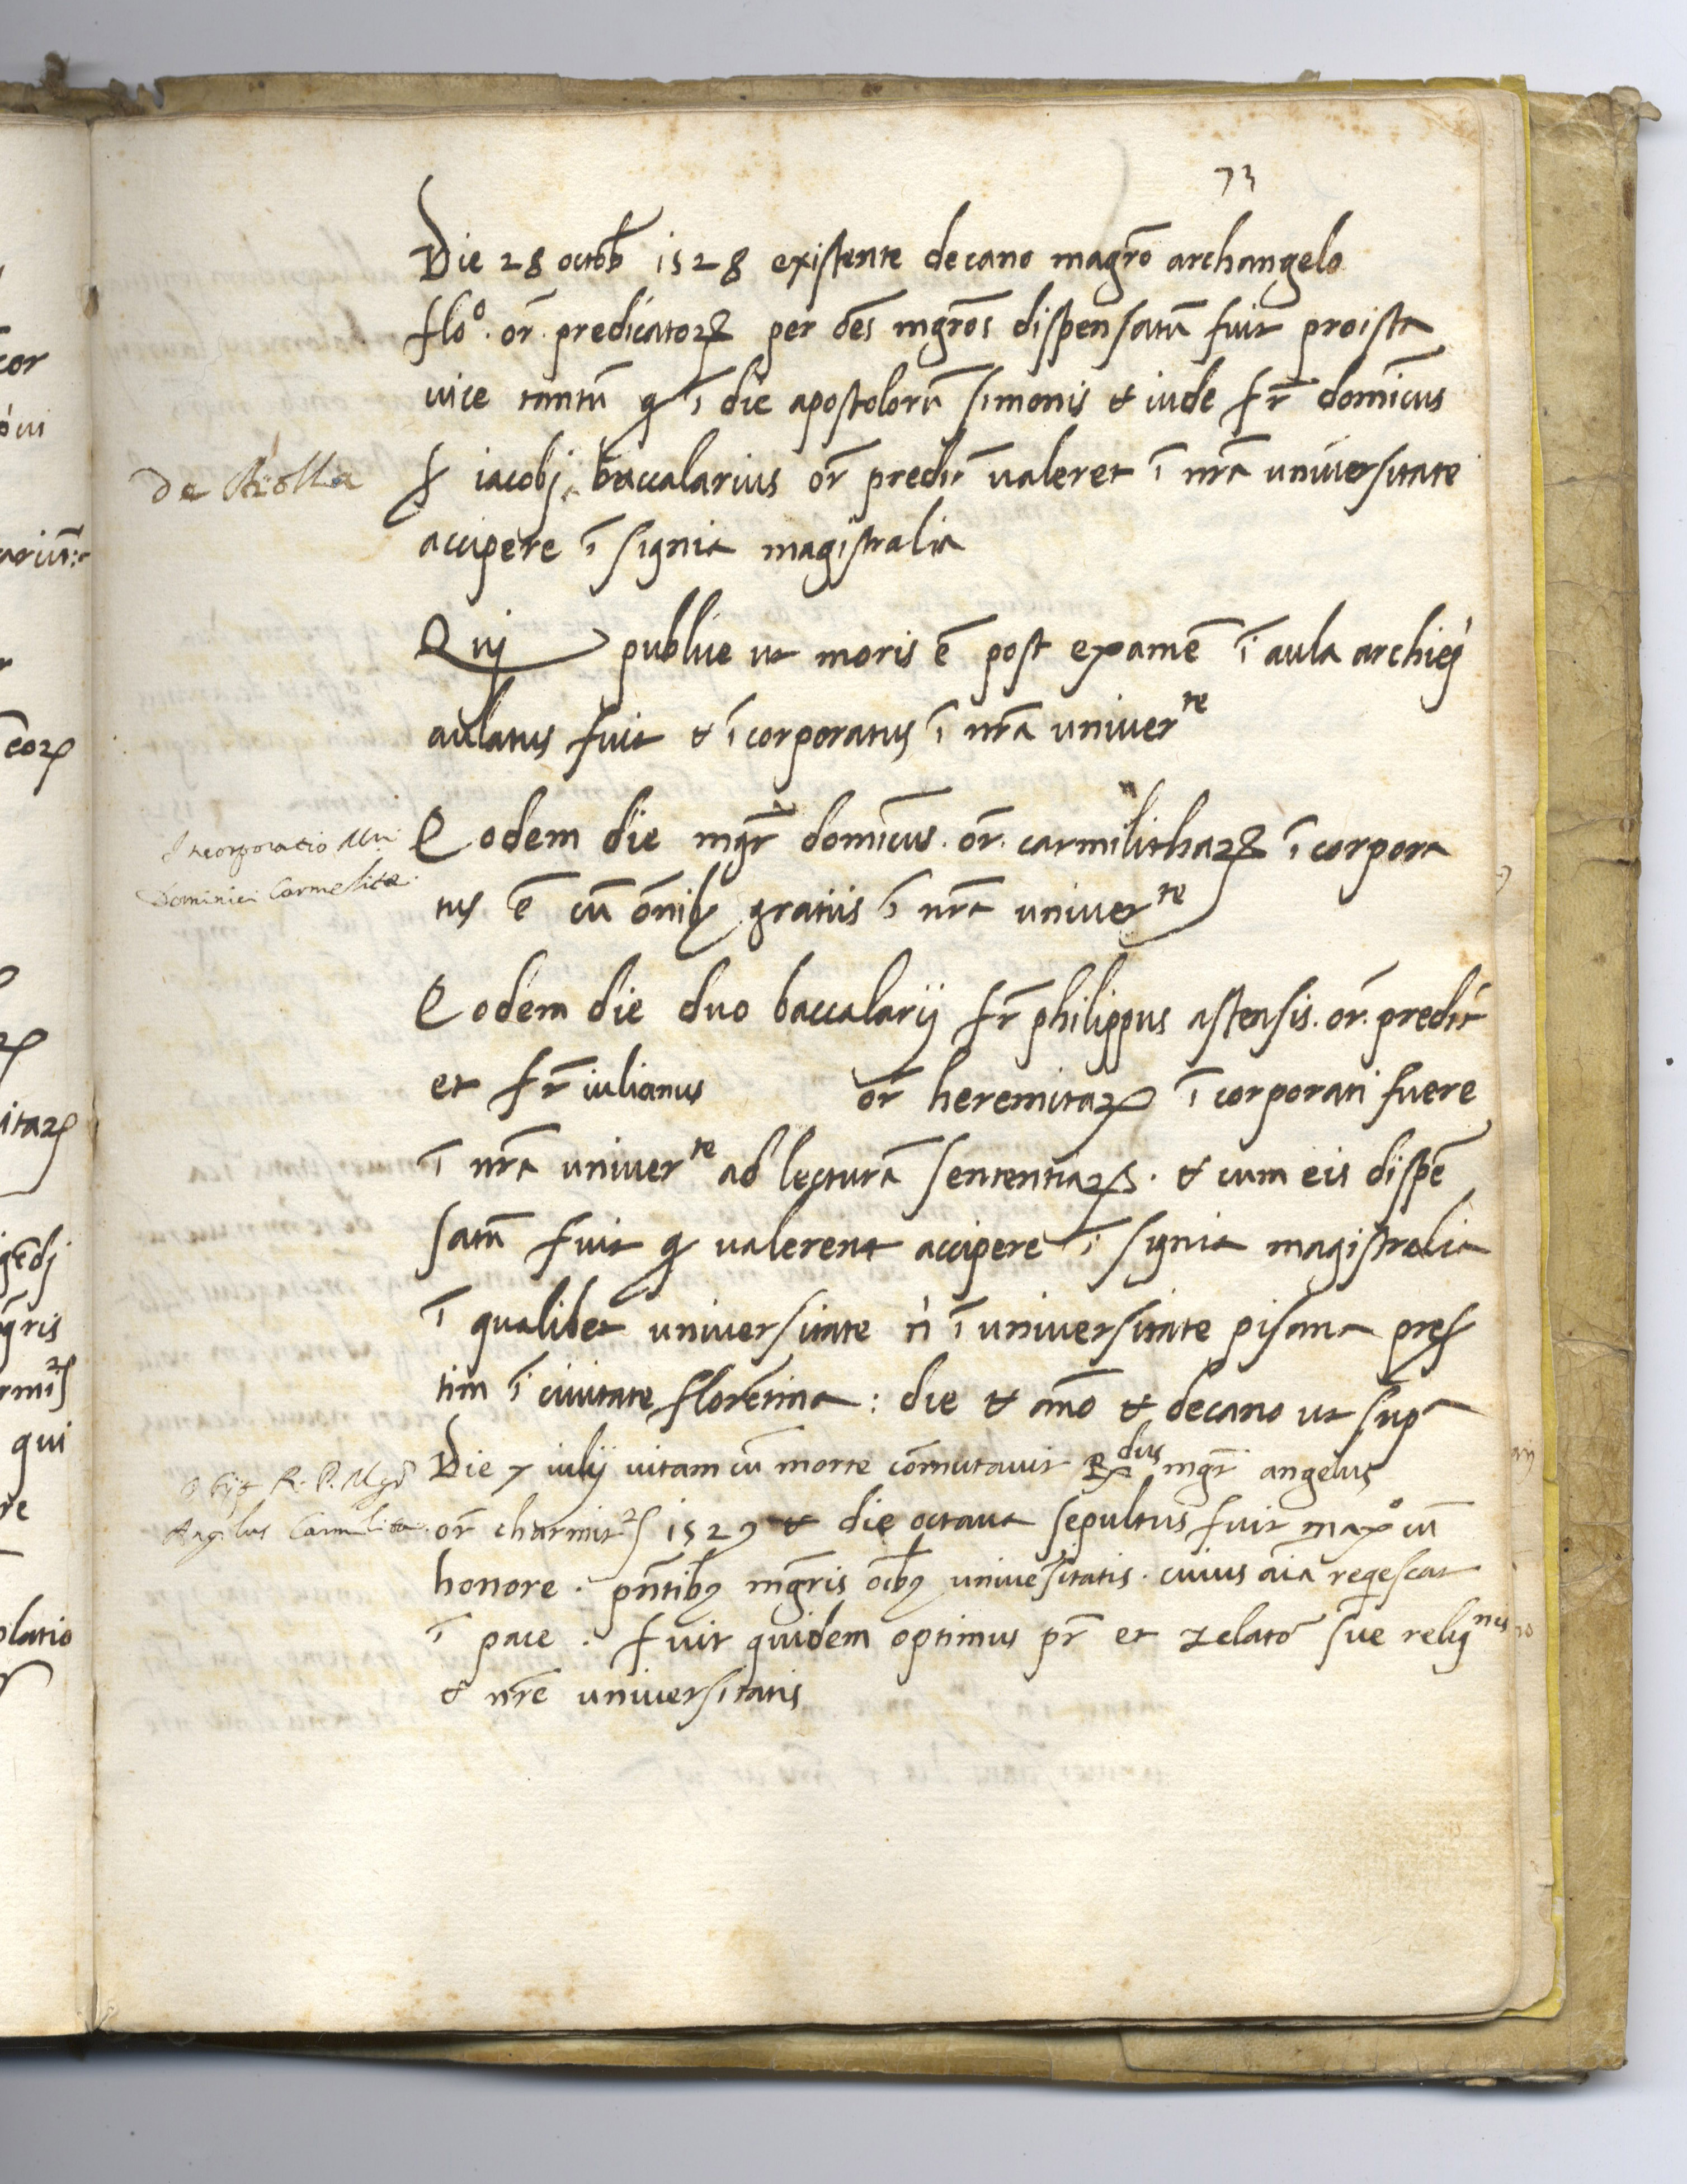 73
Die 28 octob̄ 1528 existente decano magr̄o archangelo
flo°. or̄. predicatoꝝ per oēs mgr̄os dispensatū fuit pro ista
uice tantū ꝙ ī die apostolorū simonis & iude fr̄ domīcus
de Azolla
iacobj baccalarius or̄ predic̄ ualeret ī nr̄a uniuersitate
accipere ī signia magistralia
Quj publice ut moris ē post examē ī aula archiep̄
aulatus fuit & īcorporatus ī nr̄a univerᵗᵉ
Incorporatio Mri
Dominici Carmelitæ
Eodem die mgr̄ domīcus. or̄. carmilithaꝝ īcorpora
tus ē cū ōnibꝫ gratiis ī nr̄a univerᵗᵉ
Eodem die duo baccalarij fr̄ philippus astensis. or̄. predic̄
et fr̄ iulianus or̄ heremitaꝝ īcorporati fuere
ī nr̄a univerᵗᵉ ad lecturā sententiaꝝ. & cum eis dispē
satū fuit ꝙ ualerent accipere ī signia magistralia
ī qualibet universitate n̄ ī universitate pisana pres
tim ī ciuitate florētina: die & anno & decano ut supᵃ
Obijt R. P. Mgr̄
Angelus Carmelita
Die 7 iulij uitam cū morte cōmutauit Rᵈᵘˢ mgr̄ angelus
or̄ charmitꝝ 1529 & die octaua sepultus fuit maxº cū
honore. pn̄tibꝫ mgr̄is oībꝫ universitatis. cuius aīa reqescat
ī pace. fuit quidem optimus pr̄ et zelatō sue religⁿⁱˢ
& nr̄e universitatis